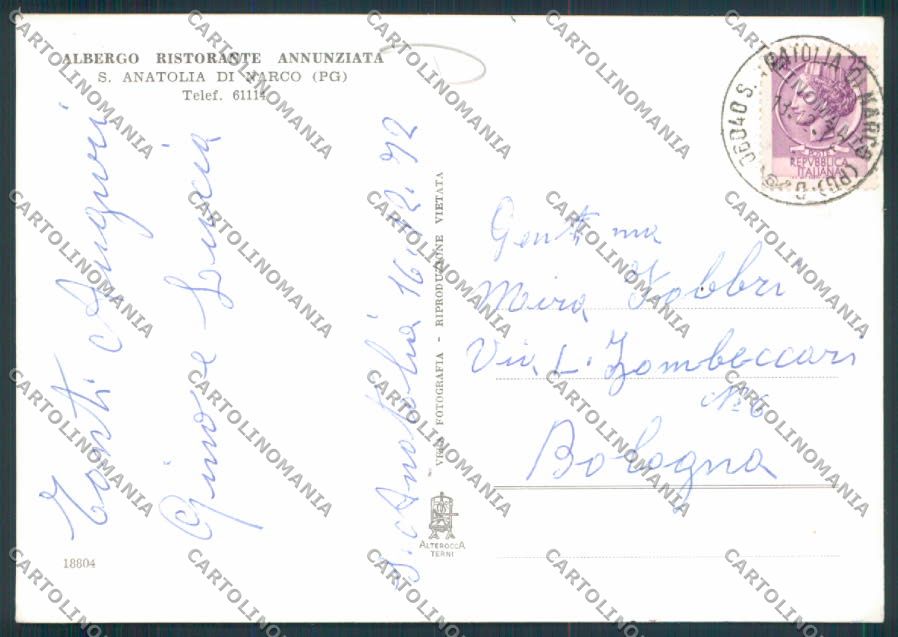 ALBERGO RISTORANTE ANNUNZIATA
S. ANATOLIA DI NARCO (PG)
Telef. 61114
Tanti Auguri
Gino e Lucia
S. Anatolia 16.12.72
VERA FOTOGRAFIA - RIPRODUZIONE VIETATA
ALTEROCCA
TERNI
18804
06040 S. ANATOLIA DI NARCO (PG)
POSTE
REPVBBLICA
ITALIANA
Gent.ma
Mira Fabbri
Via L. Zambeccari
No 6
Bologna
CARTOLINOMANIA